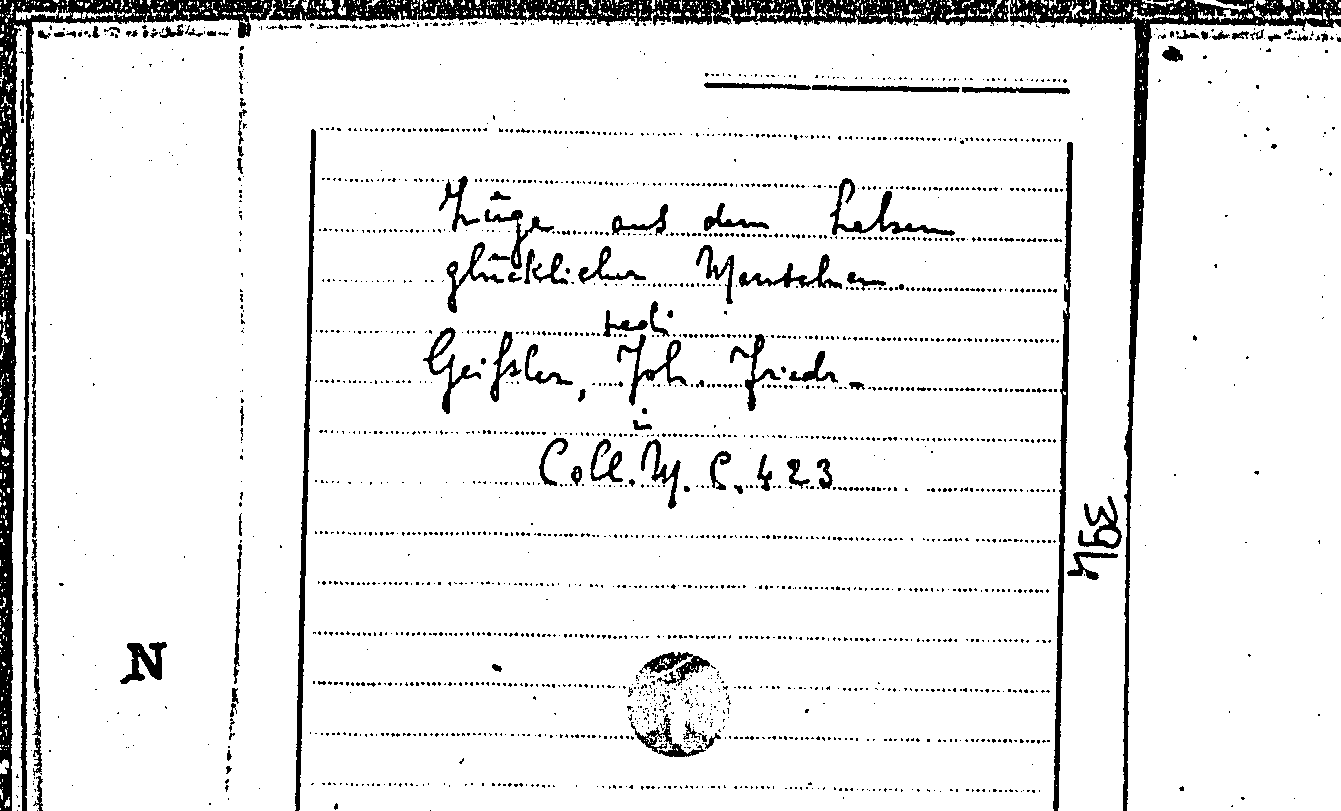 Züge aus dem Leben
glücklicher Menschen.
Geißler, Joh. Friedr.
i
Coll. M. C. 423
394
N